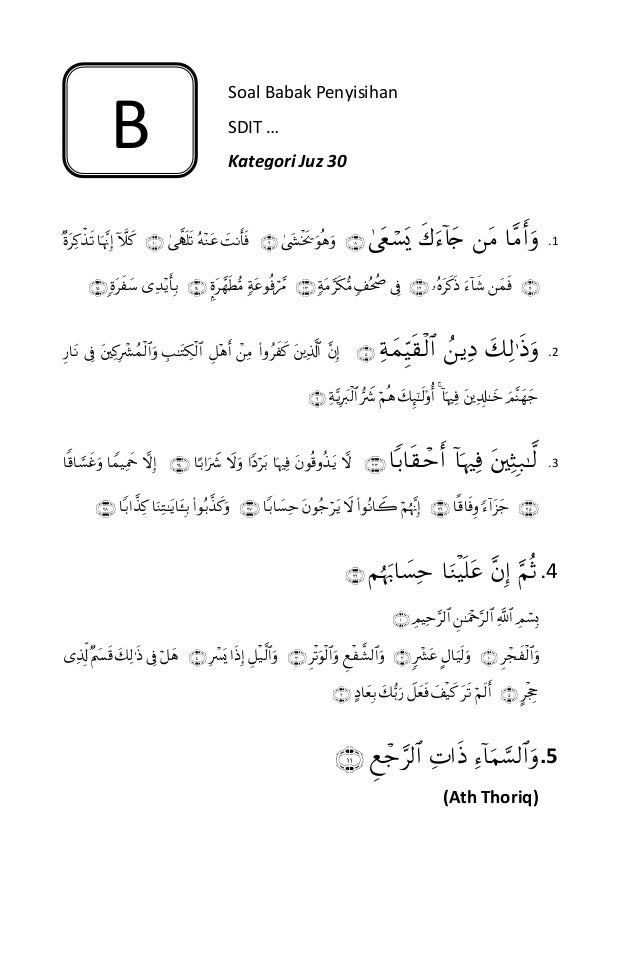 B
Soal Babak Penyisihan
SDIT ...
Kategori Juz 30
1. وَأَمَّا مَن جَآءَكَ يَسْعَىٰ ۝٨ وَهُوَ يَخْشَىٰ ۝٩ فَأَنتَ عَنْهُ تَلَهَّىٰ ۝١٠ كَلَّآ إِنَّهَا تَذْكِرَةٌ
۝١١ فَمَن شَآءَ ذَكَرَهُۥ ۝١٢ فِى صُحُفٍ مُّكَرَّمَةٍ ۝١٣ مَّرْفُوعَةٍ مُّطَهَّرَةٍۭ ۝١٤ بِأَيْدِى سَفَرَةٍ ۝١٥
2. وَذَٰلِكَ دِينُ ٱلْقَيِّمَةِ ۝٥ إِنَّ ٱلَّذِينَ كَفَرُوا۟ مِنْ أَهْلِ ٱلْكِتَـٰبِ وَٱلْمُشْرِكِينَ فِى نَارِ
جَهَنَّمَ خَـٰلِدِينَ فِيهَآ ۚ أُو۟لَـٰٓئِكَ هُمْ شَرُّ ٱلْبَرِيَّةِ ۝٦
3. لَّـٰبِثِينَ فِيهَآ أَحْقَابًا ۝٢٣ لَّا يَذُوقُونَ فِيهَا بَرْدًا وَلَا شَرَابًا ۝٢٤ إِلَّا حَمِيمًا وَغَسَّاقًا
۝٢٥ جَزَآءً وِفَاقًا ۝٢٦ إِنَّهُمْ كَانُوا۟ لَا يَرْجُونَ حِسَابًا ۝٢٧ وَكَذَّبُوا۟ بِـَٔايَـٰتِنَا كِذَّابًا ۝٢٨
4. ثُمَّ إِنَّ عَلَيْنَا حِسَابَهُم ۝٢٦
بِسْمِ ٱللَّهِ ٱلرَّحْمَـٰنِ ٱلرَّحِيمِ ۝
وَٱلْفَجْرِ ۝١ وَلَيَالٍ عَشْرٍ ۝٢ وَٱلشَّفْعِ وَٱلْوَتْرِ ۝٣ وَٱلَّيْلِ إِذَا يَسْرِ ۝٤ هَلْ فِى ذَٰلِكَ قَسَمٌ لِّذِى
حِجْرٍ ۝٥ أَلَمْ تَرَ كَيْفَ فَعَلَ رَبُّكَ بِعَادٍ ۝٦
5. وَٱلسَّمَآءِ ذَاتِ ٱلرَّجْعِ ۝١١
(Ath Thoriq)